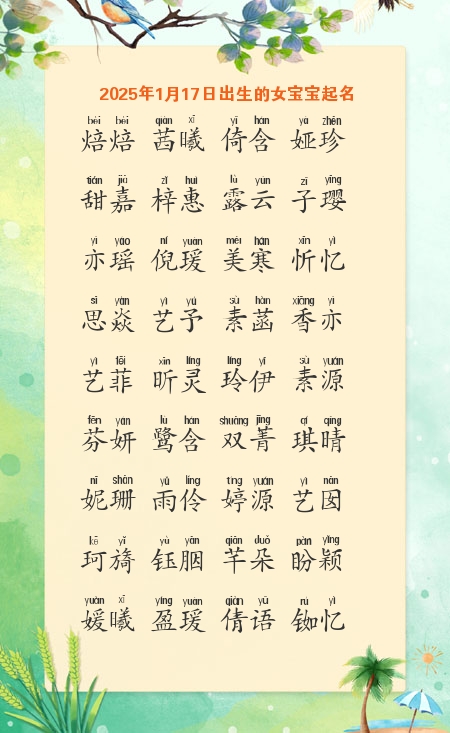 2025年1月17日出生的女宝宝起名
bèi bèi qiàn xī yǐ hán yà zhēn
焙焙 茜曦 倚含 娅珍
tián jiā zǐ huì lù yún zǐ yīng
甜嘉 梓惠 露云 子璎
yì yáo ní yuàn měi hán xīn yì
亦瑶 倪瑗 美寒 忻忆
sī yàn yì yú sù hàn xiāng yì
思焱 艺予 素菡 香亦
yì fēi xīn líng líng yī sù yuán
艺菲 昕灵 玲伊 素源
fēn yán lù hán shuāng jīng qí qíng
芬妍 鹭含 双菁 琪晴
nī shān yǔ líng tíng yuán yì nān
妮珊 雨伶 婷源 艺囡
kē yǐ yù yān qiān duǒ pàn yǐng
珂旖 钰胭 芊朵 盼颖
yuàn xī yíng yuàn qiàn yǔ rú yì
媛曦 盈瑗 倩语 铷忆